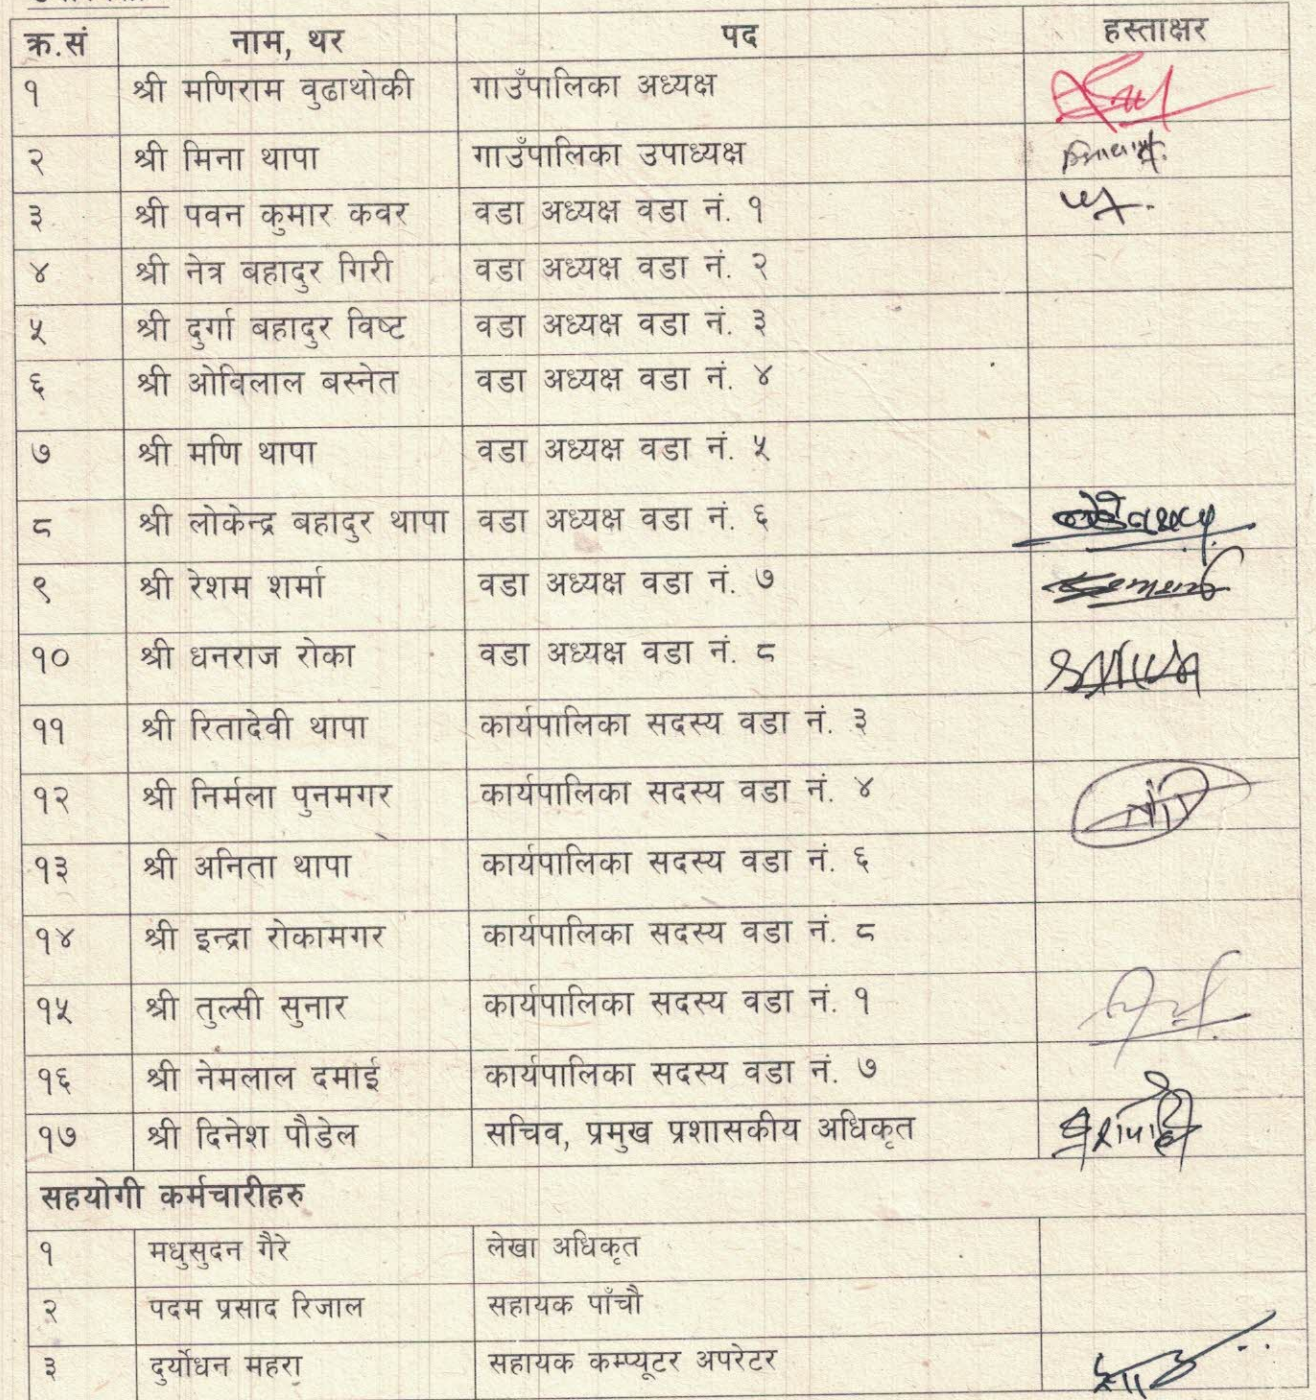 क्र.सं नाम, थर पद हस्ताक्षर
१ श्री मणिराम वुढाथोकी गाउँपालिका अध्यक्ष
२ श्री मिना थापा गाउँपालिका उपाध्यक्ष
३ श्री पवन कुमार कवर वडा अध्यक्ष वडा नं. १
४ श्री नेत्र बहादुर गिरी वडा अध्यक्ष वडा नं. २
५ श्री दुर्गा बहादुर विष्ट वडा अध्यक्ष वडा नं. ३
६ श्री ओविलाल बस्नेत वडा अध्यक्ष वडा नं. ४
७ श्री मणि थापा वडा अध्यक्ष वडा नं. ५
८ श्री लोकेन्द्र बहादुर थापा वडा अध्यक्ष वडा नं. ६
९ श्री रेशम शर्मा वडा अध्यक्ष वडा नं. ७
१० श्री धनराज रोका वडा अध्यक्ष वडा नं. ८
११ श्री रितादेवी थापा कार्यपालिका सदस्य वडा नं. ३
१२ श्री निर्मला पुनमगर कार्यपालिका सदस्य वडा नं. ४
१३ श्री अनिता थापा कार्यपालिका सदस्य वडा नं. ६
१४ श्री इन्द्रा रोकामगर कार्यपालिका सदस्य वडा नं. ८
१५ श्री तुल्सी सुनार कार्यपालिका सदस्य वडा नं. १
१६ श्री नेमलाल दमाई कार्यपालिका सदस्य वडा नं. ७
१७ श्री दिनेश पौडेल सचिव, प्रमुख प्रशासकीय अधिकृत
सहयोगी कर्मचारीहरु
१ मधुसुदन गैरे लेखा अधिकृत
२ पदम प्रसाद रिजाल सहायक पाँचौ
३ दुर्योधन महरा सहायक कम्प्यूटर अपरेटर